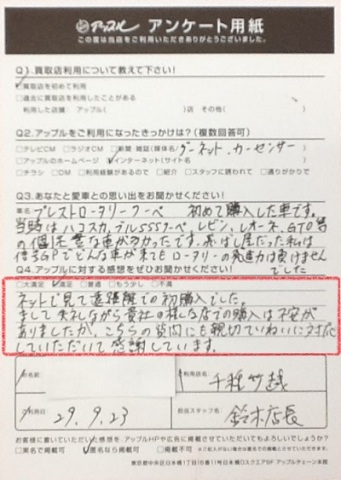 アップル アンケート用紙
この度は当店をご利用いただきありがとうございました。
Q1.買取店利用について教えて下さい!
☑買取店を初めて利用
□過去に買取店を利用したことがある
利用した店舗 アップル( )店 その他( )
Q2.アップルをご利用になったきっかけは?(複数回答可)
□テレビCM □ラジオCM □新聞 雑誌(媒体名/ グーネット、カーセンサー
□アップルのホームページ ☑インターネット(サイト名 )
□チラシ □DM □利用経験があるので □紹介 □スタッフに誘われて □通りがかりで
Q3.あなたと愛車との思い出をお聞かせください!
車名 プレストロータリークーペ 初めて購入した車です。
当時はハコスカ、ブル555クーペ、レビン、レオーネ、GTO等
の個性豊な車が多かったです。
信号GPでどんな車が来てもロータリーの発進力は負けません
でした
Q4.アップルに対する感想をぜひお聞かせください!
□大満足 ☑満足 □普通 □もう少し □不満
ネットで見て遠距離での初購入でした。
まして失礼ながら貴社の様な店での購入は不安が
ありましたが、こちらの質問にも親切ていねいに対応
していただいて感謝しています。
お名前
ご利用店名 千種竹越
ご利用日 29.9.23
担当スタッフ名 鈴木店長
お客様に書いていただいた感想を、アップルHPや広告に掲載させていただいてもよろしいでしょうか?
□実名で掲載可 ☑匿名なら掲載可 □掲載不可
東京都中央区日本橋1丁目15番11号日本橋Dスクエア5F アップルチェーン本部